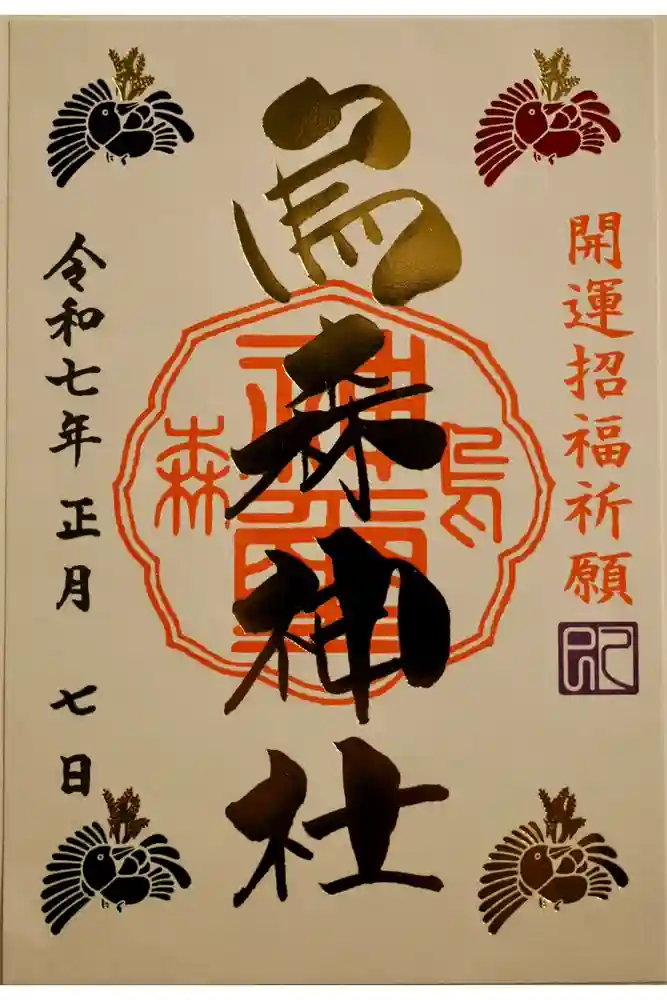 開運招福祈願
烏森神社
烏
森
神璽
令和七年 正月 七日